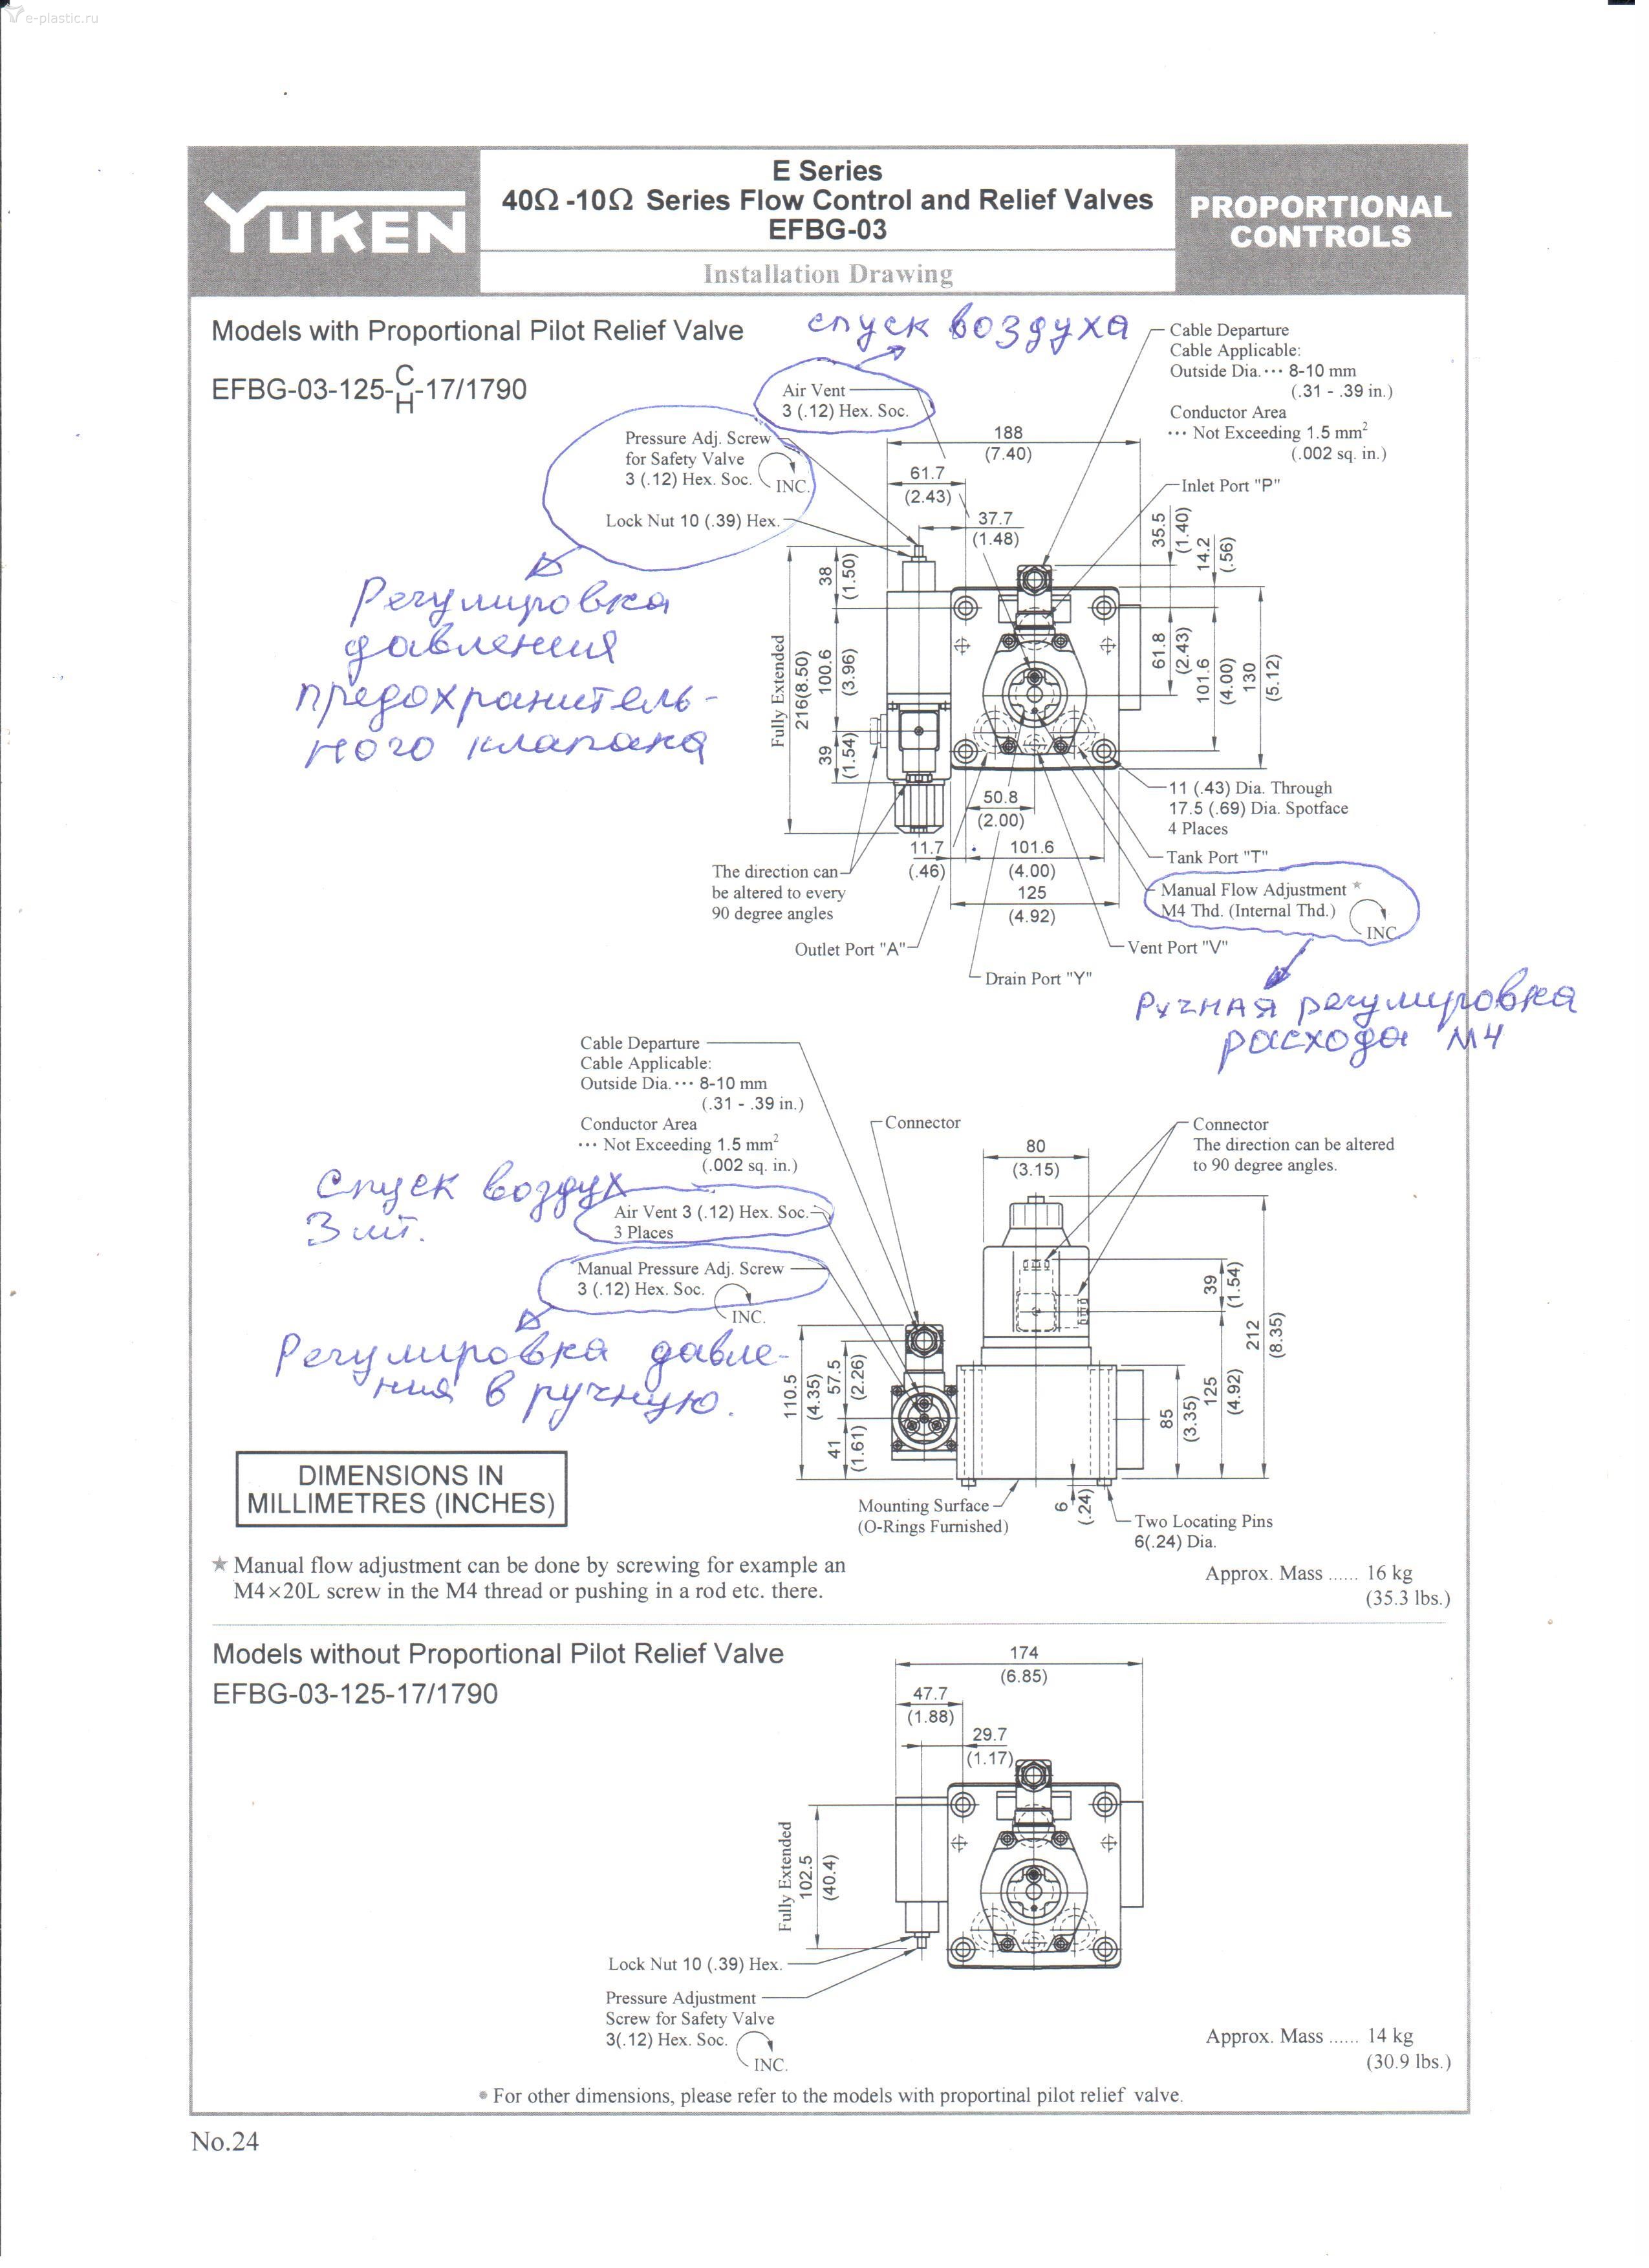 e-plastic.ru
YUKEN
E Series
40Ω -10Ω Series Flow Control and Relief Valves
EFBG-03
Installation Drawing
PROPORTIONAL
CONTROLS
Models with Proportional Pilot Relief Valve
EFBG-03-125-C/H-17/1790
спуск воздуха
Air Vent
3 (.12) Hex. Soc.
Pressure Adj. Screw
for Safety Valve
3 (.12) Hex. Soc.
INC.
Lock Nut 10 (.39) Hex.
Регулировка
давления
предохранитель-
ного клапана
Cable Departure
Cable Applicable:
Outside Dia. ··· 8-10 mm
(.31 - .39 in.)
Conductor Area
··· Not Exceeding 1.5 mm²
(.002 sq. in.)
Inlet Port "P"
188
(7.40)
61.7
(2.43)
37.7
(1.48)
35.5
(1.40)
14.2
(.56)
38
(1.50)
Fully Extended
216(8.50)
100.6
(3.96)
39
(1.54)
61.8
(2.43)
101.6
(4.00)
130
(5.12)
50.8
(2.00)
11.7
(.46)
101.6
(4.00)
125
(4.92)
The direction can
be altered to every
90 degree angles
11 (.43) Dia. Through
17.5 (.69) Dia. Spotface
4 Places
Tank Port "T"
Manual Flow Adjustment ★
M4 Thd. (Internal Thd.)
INC.
Outlet Port "A"
Vent Port "V"
Drain Port "Y"
Ручная регулировка
расхода М4
Cable Departure
Cable Applicable:
Outside Dia. ··· 8-10 mm
(.31 - .39 in.)
Conductor Area
··· Not Exceeding 1.5 mm²
(.002 sq. in.)
Connector
Connector
The direction can be altered
to 90 degree angles.
80
(3.15)
Спуск воздух
3 шт.
Air Vent 3 (.12) Hex. Soc.
3 Places
Manual Pressure Adj. Screw
3 (.12) Hex. Soc.
INC.
Регулировка давле-
ния в ручную.
39
(1.54)
212
(8.35)
110.5
(4.35)
57.5
(2.26)
41
(1.61)
85
(3.35)
125
(4.92)
6
(.24)
DIMENSIONS IN
MILLIMETRES (INCHES)
Mounting Surface
(O-Rings Furnished)
Two Locating Pins
6(.24) Dia.
★ Manual flow adjustment can be done by screwing for example an
M4×20L screw in the M4 thread or pushing in a rod etc. there.
Approx. Mass ...... 16 kg
(35.3 lbs.)
Models without Proportional Pilot Relief Valve
EFBG-03-125-17/1790
174
(6.85)
47.7
(1.88)
29.7
(1.17)
Fully Extended
102.5
(40.4)
Lock Nut 10 (.39) Hex.
Pressure Adjustment
Screw for Safety Valve
3(.12) Hex. Soc.
INC.
Approx. Mass ...... 14 kg
(30.9 lbs.)
● For other dimensions, please refer to the models with proportinal pilot relief valve.
No.24